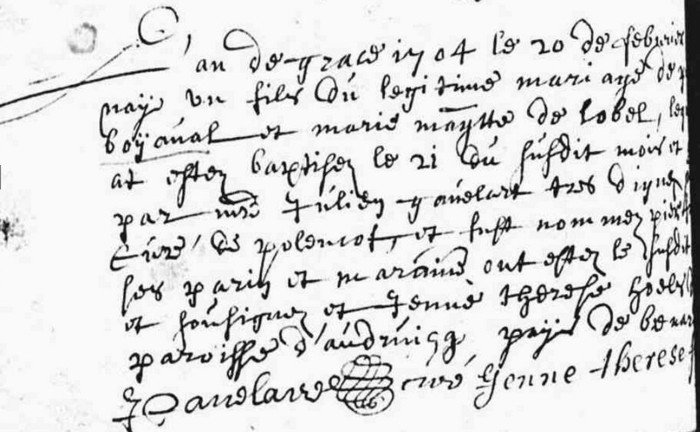 L'an de grace 1704 le 20 de febvrier
naÿt un fils du legitime mariage de
boÿaval et marie maÿtte de lobel, leq
at estez baptisez le 21 du susdit mois et
par mre Julien gavelart tres digne
Curé de polencof, et fust nommez pier
ses parin et maraine ont estez le susdit
et sousignez et Jenne therese
paroisse d'audruicq païs de
J Gavelart curé Jenne therese